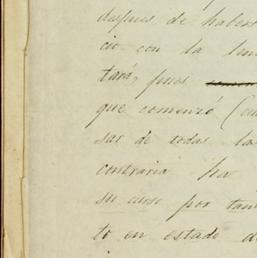 despues de haber
cio con la
tará, pues
que comenzó
sar de todas la
contraria ha
su curso por tan
to en estado d